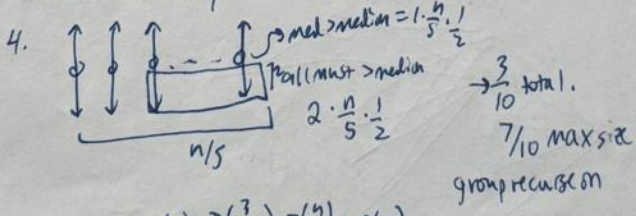 4.
med > median = 1·n/5·1/2
all must > median
2·n/5·1/2
n/5
→ 3/10 total.
7/10 max size
group recurse on